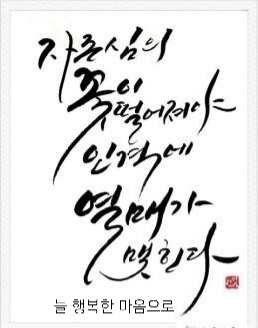 자존심의
꽃이
떨어져야
인격에
열매가
맺힌다
늘 행복한 마음으로